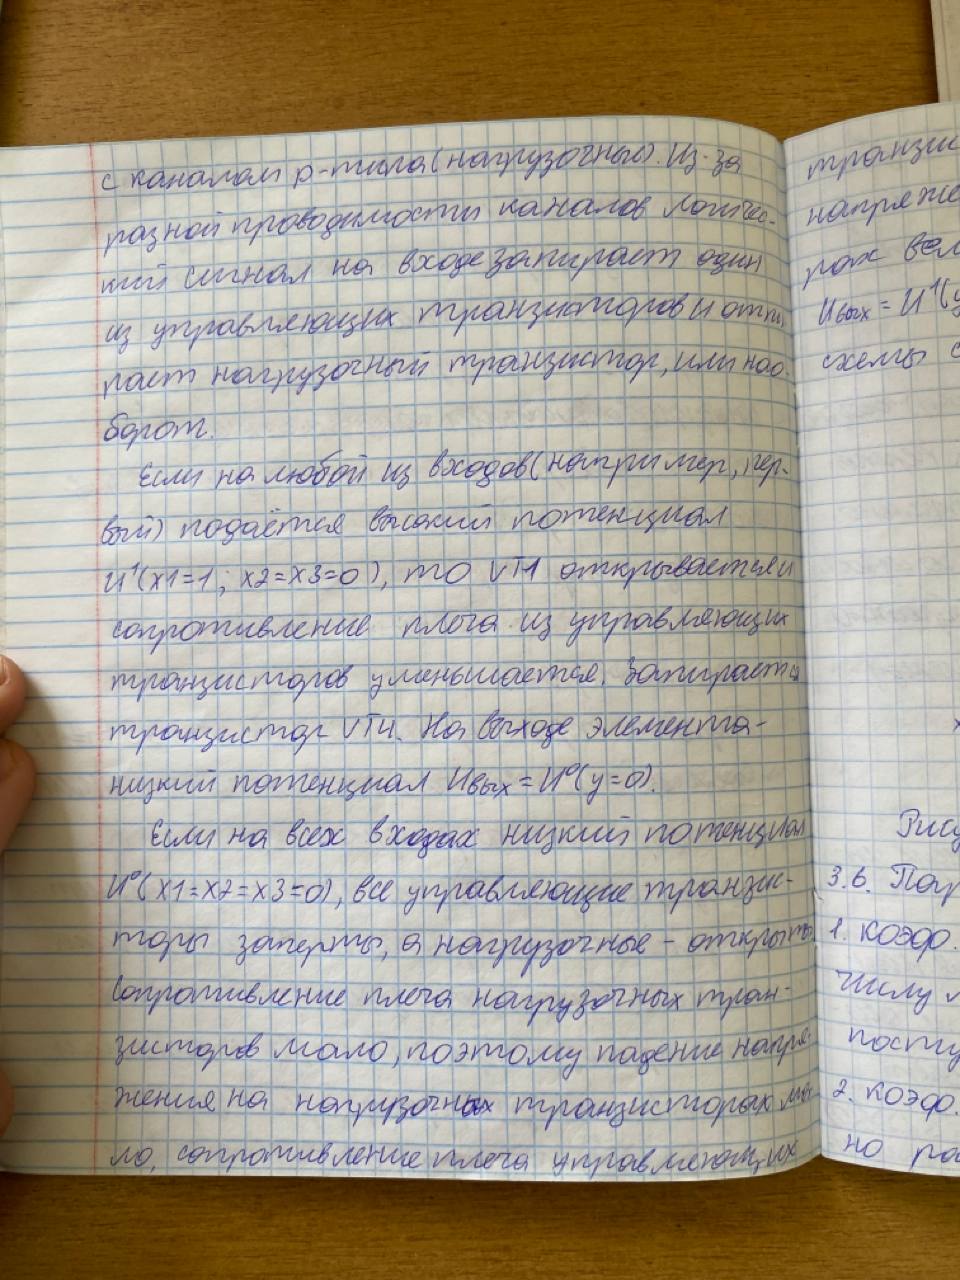 с каналом p-типа (нагрузочные). Из-за
разной проводимости каналов логичес-
кий сигнал на входе запирает один
из управляющих транзисторов и отпи
рает нагрузочный транзистор, или нао-
борот.
Если на любой из входов (например, пер-
вый) подаётся высокий потенциал
U¹(x1=1; x2=x3=0), то VT1 открывается и
сопротивление плеча из управляющих
транзисторов уменьшается. Запирается
транзистор VT4. На выходе элемента-
низкий потенциал Uвых = U⁰(y=0).
Если на всех входах низкий потенциал
U⁰(x1=x2=x3=0), все управляющие транзис-
торы заперты, а нагрузочные - открыты
Сопротивление плеча нагрузочных тран-
зисторов мало, поэтому падение напря-
жения на нагрузочных транзисторах ма-
ло, сопротивление плеча управляющих
транзис
напряже
рах вел
Uвых = U¹(y
схемы с
x
Рису
3.6. Пар
1. Коэф.
числу
посту
2. Коэф.
но ра